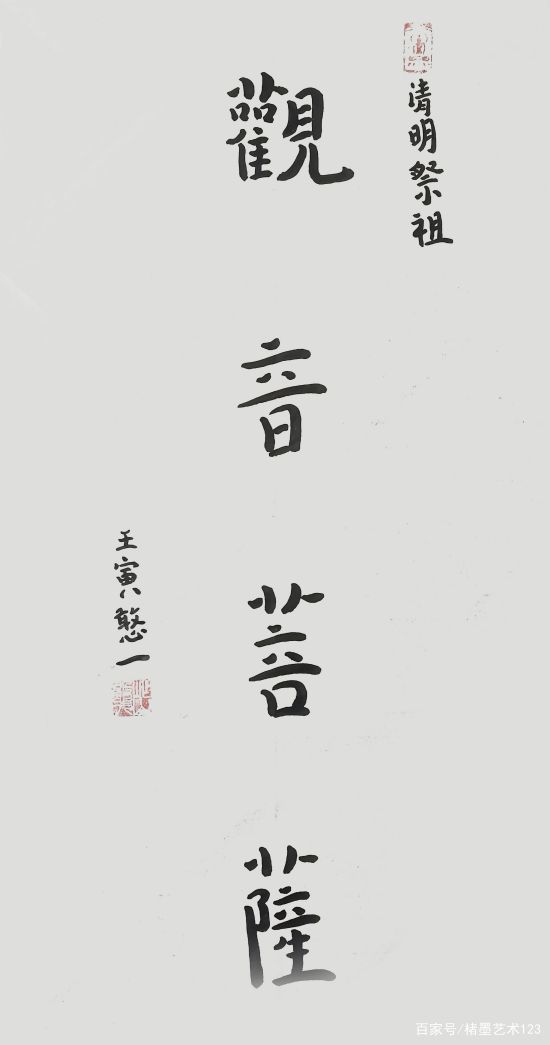 清明祭祖
觀音菩薩
壬寅憨一
百家号/楮墨艺术123